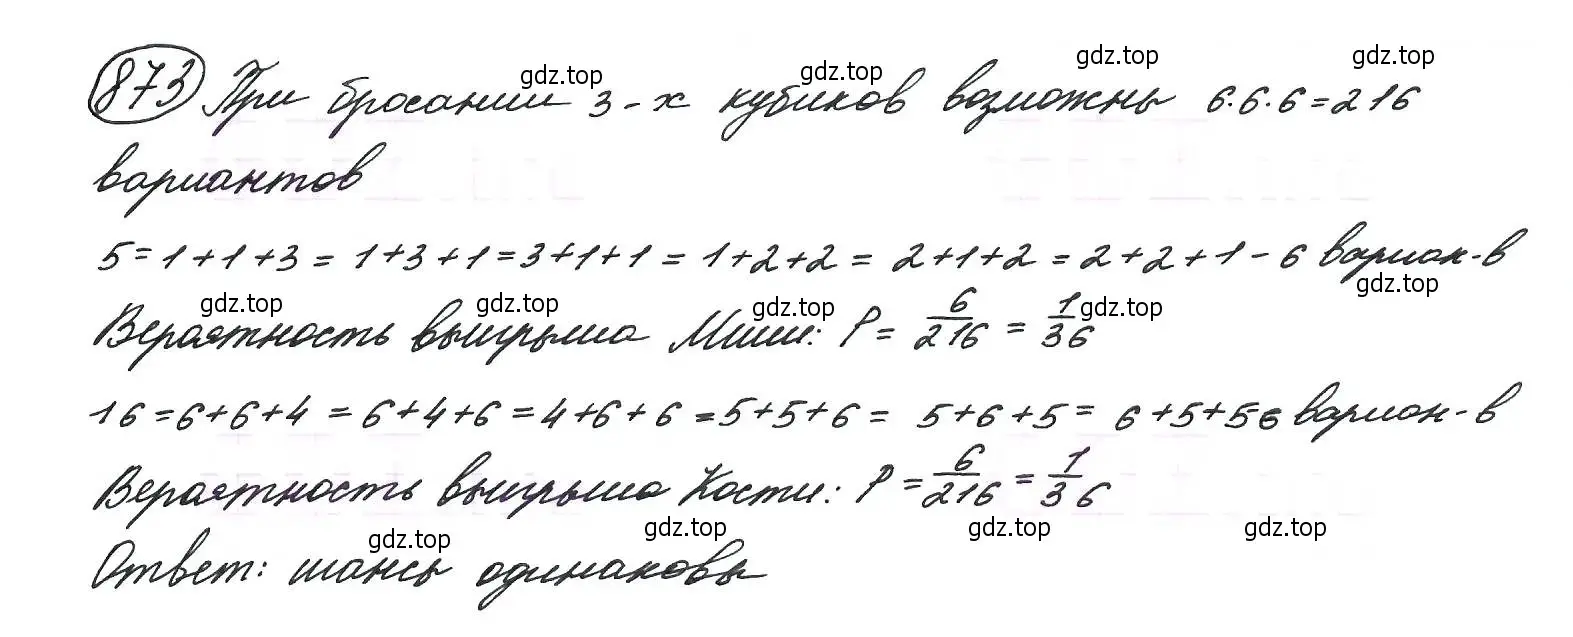 873 При бросании 3-х кубиков возможны 6·6·6=216
вариантов
5=1+1+3=1+3+1=3+1+1=1+2+2=2+1+2=2+2+1-6 вариан-в
Вероятность выигрыша Миши: P=6/216=1/36
16=6+6+4=6+4+6=4+6+6=5+5+6=5+6+5=6+5+5-6 вариан-в
Вероятность выигрыша Кости: P=6/216=1/36
Ответ: шансы одинаковы
gdz.top gdz.top gdz.top gdz.top
gdz.top gdz.top gdz.top gdz.top gdz.top
gdz.top gdz.top gdz.top gdz.top